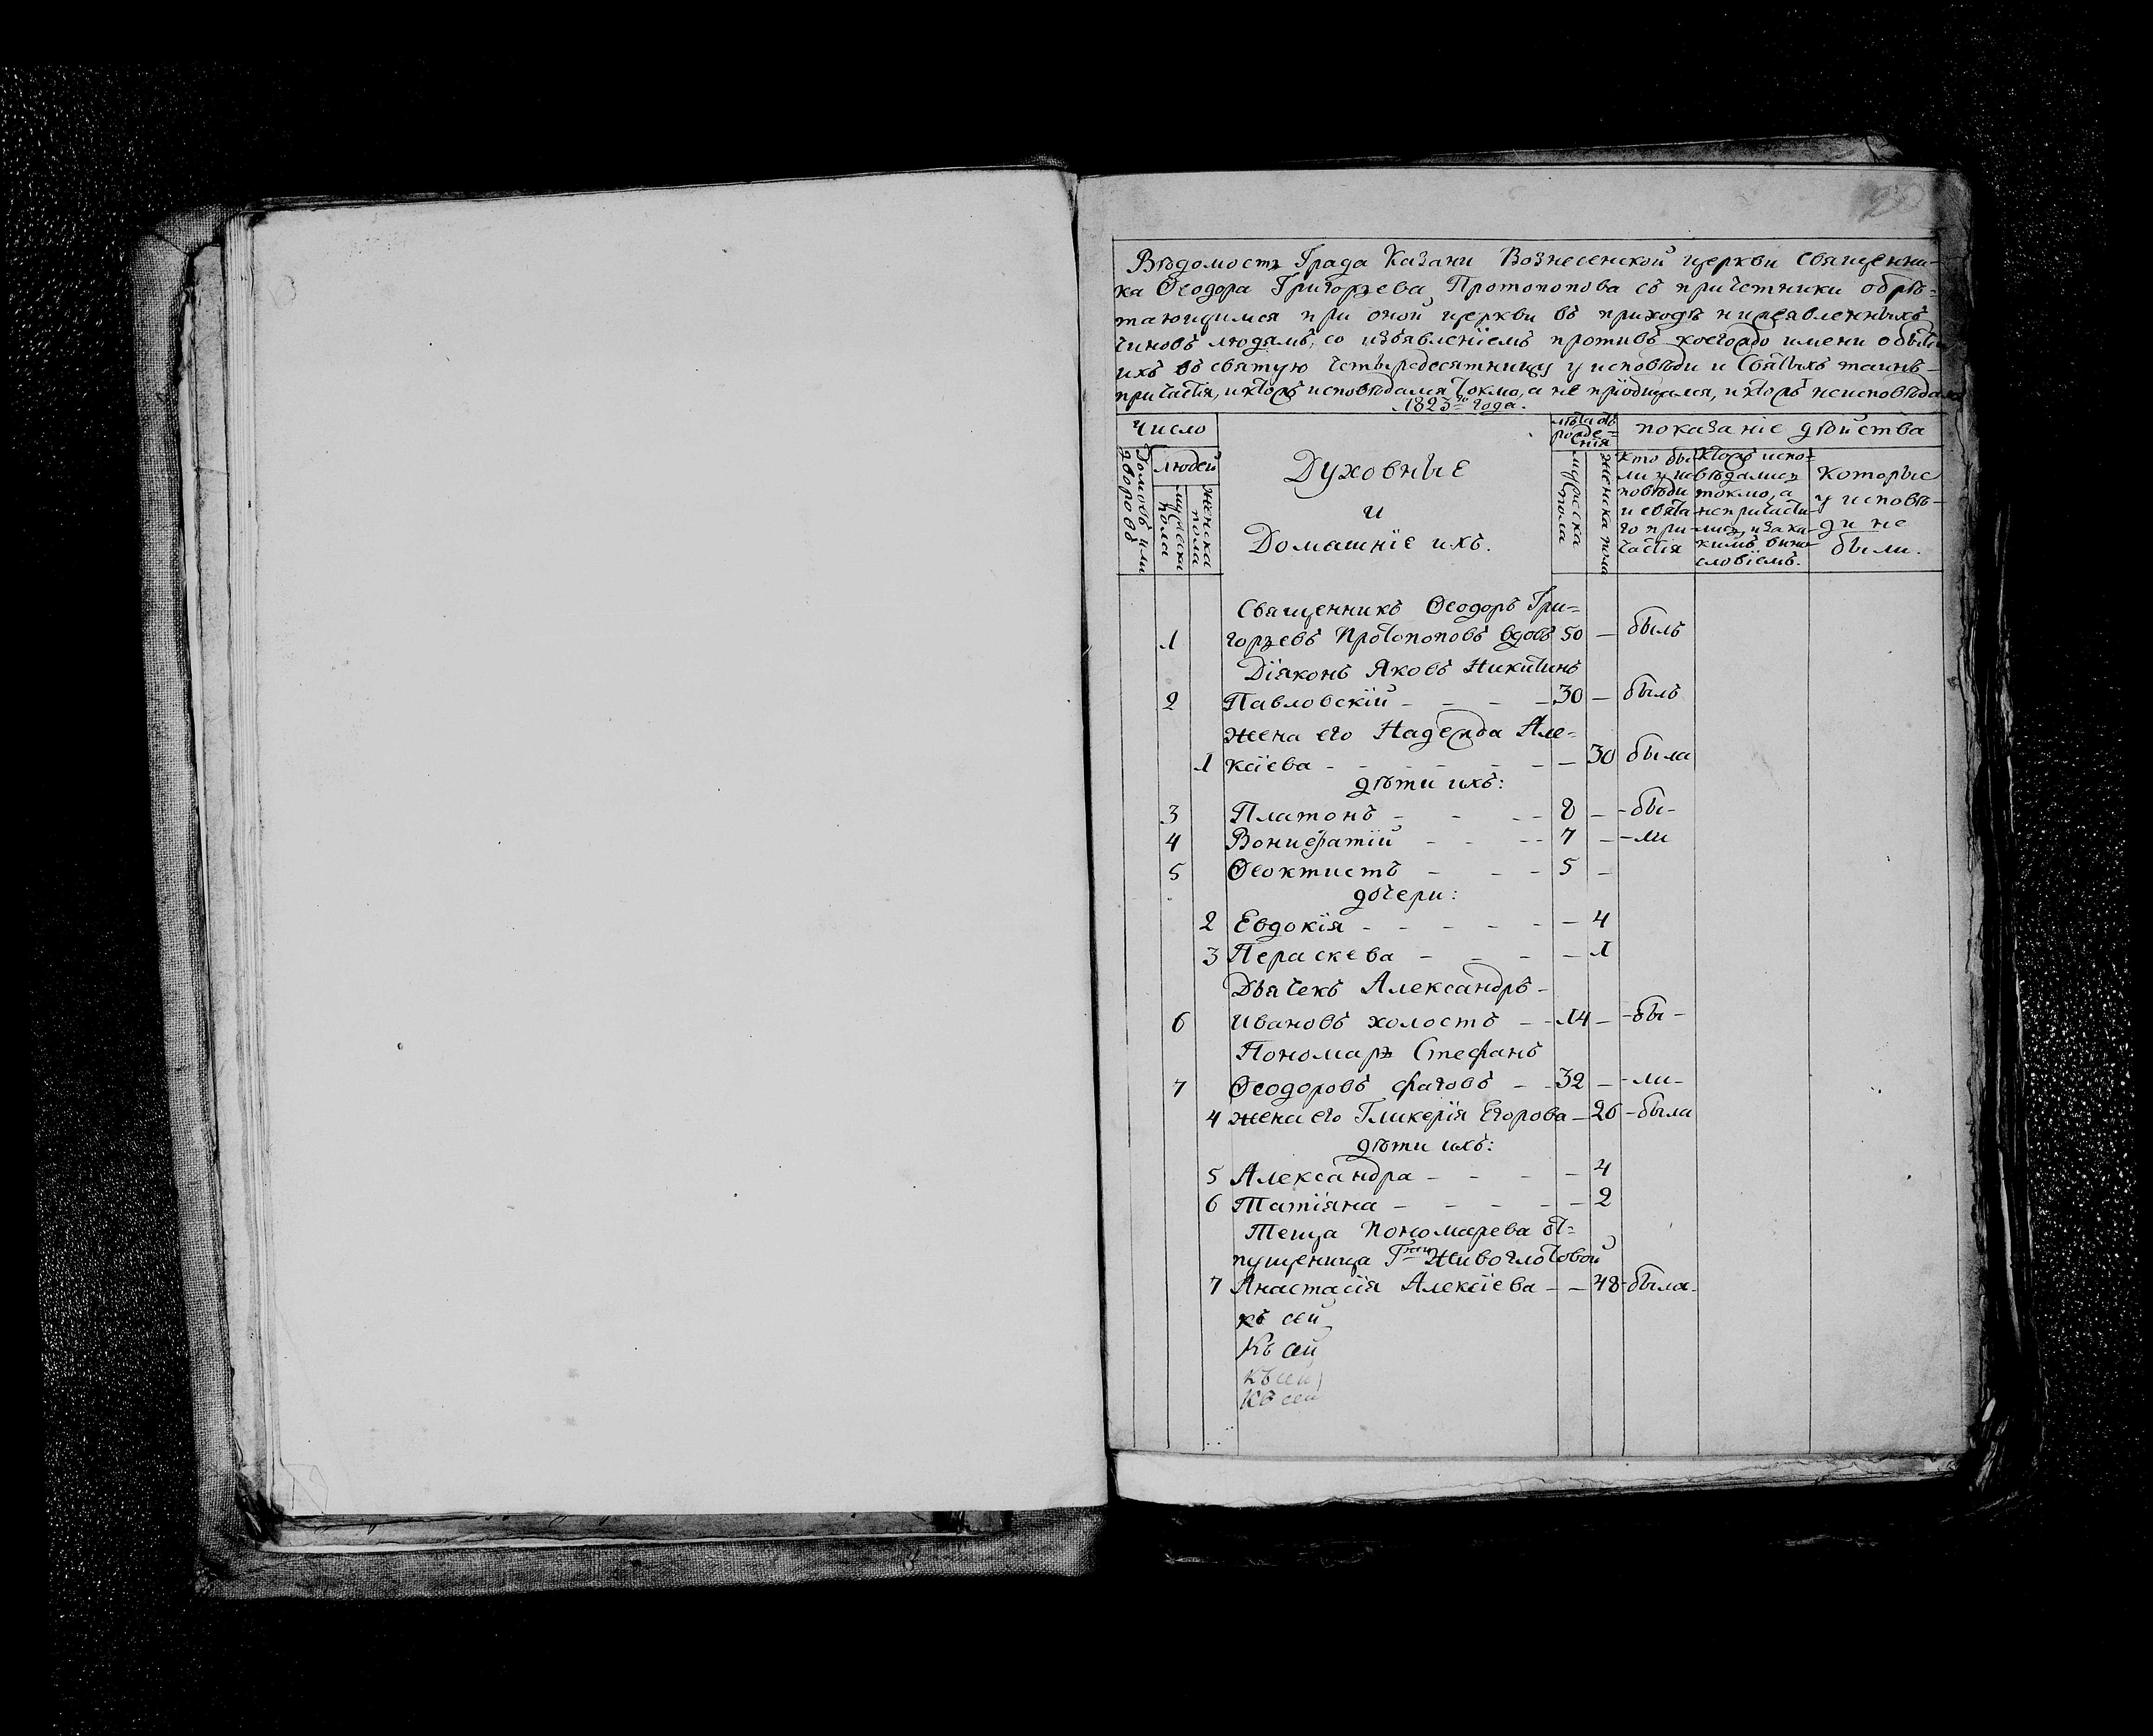 20
Вѣдомость Града Казани Вознесенской церкви Священни-
ка Ѳеодора Григорьева Протопопова съ причетники обрѣ-
тающимся при оной церкви въ приходѣ нижеявленныхъ
чиновъ людямъ, со изъявленіемъ противъ коегождо имени о бытіи
ихъ въ святую четыредесятницу у исповѣди и Святыхъ таинъ-
причастія, и ктожъ исповѣдался токмо, а не пріобщался, и ктожъ не исповѣдался
1823го года.
Число
лѣта отъ рожде=
нія
показаніе дѣйства
Домовъ или
дворовъ
людей
мужска
пола
женска
пола
Духовные
и
Домашніе ихъ.
мужеска
пола
женска пола
Кто бы
ли у ис
повѣди
и свята
го при-
частія
Ктожъ испо-
вѣдались
токмо, а
не причасти-
лись, и за ка-
кимъ вино
словіемъ.
Которые
у исповѣ-
ди не
были.
Священникъ Ѳеодоръ Гри=
1 горьевъ Протопоповъ вдовъ 50 — былъ
Діяконъ Яковъ Никитинъ
2 Павловскій - - - - 30 — былъ
жена его Надежда Але=
1 ксіева - - - - - — 30 была
дѣти ихъ:
3 Платонъ - - - - 8 — - бы-
4 Вонифатій - - - - 7 — - ли
5 Ѳеоктистъ - - - 5 —
дочери:
2 Евдокія - - - - - — 4
3 Параскева - - - — 1
Дьячекъ Александръ -
6 Ивановъ холостъ - - 14 — - бы -
Пономарь Стефанъ
7 Ѳеодоровъ фаговъ - - 32 — - ли -
4 жена его Гликерія Егорова — 26 - была
дѣти ихъ:
5 Александра - - - — 4
6 Татіяна - - - - - — 2
Теща пономарева от=
пущеница Гжи Живоглотовой
7 Анастасія Алексіева - — 48 - была -
къ сей
Къ сей
Къ сей
Къ сей